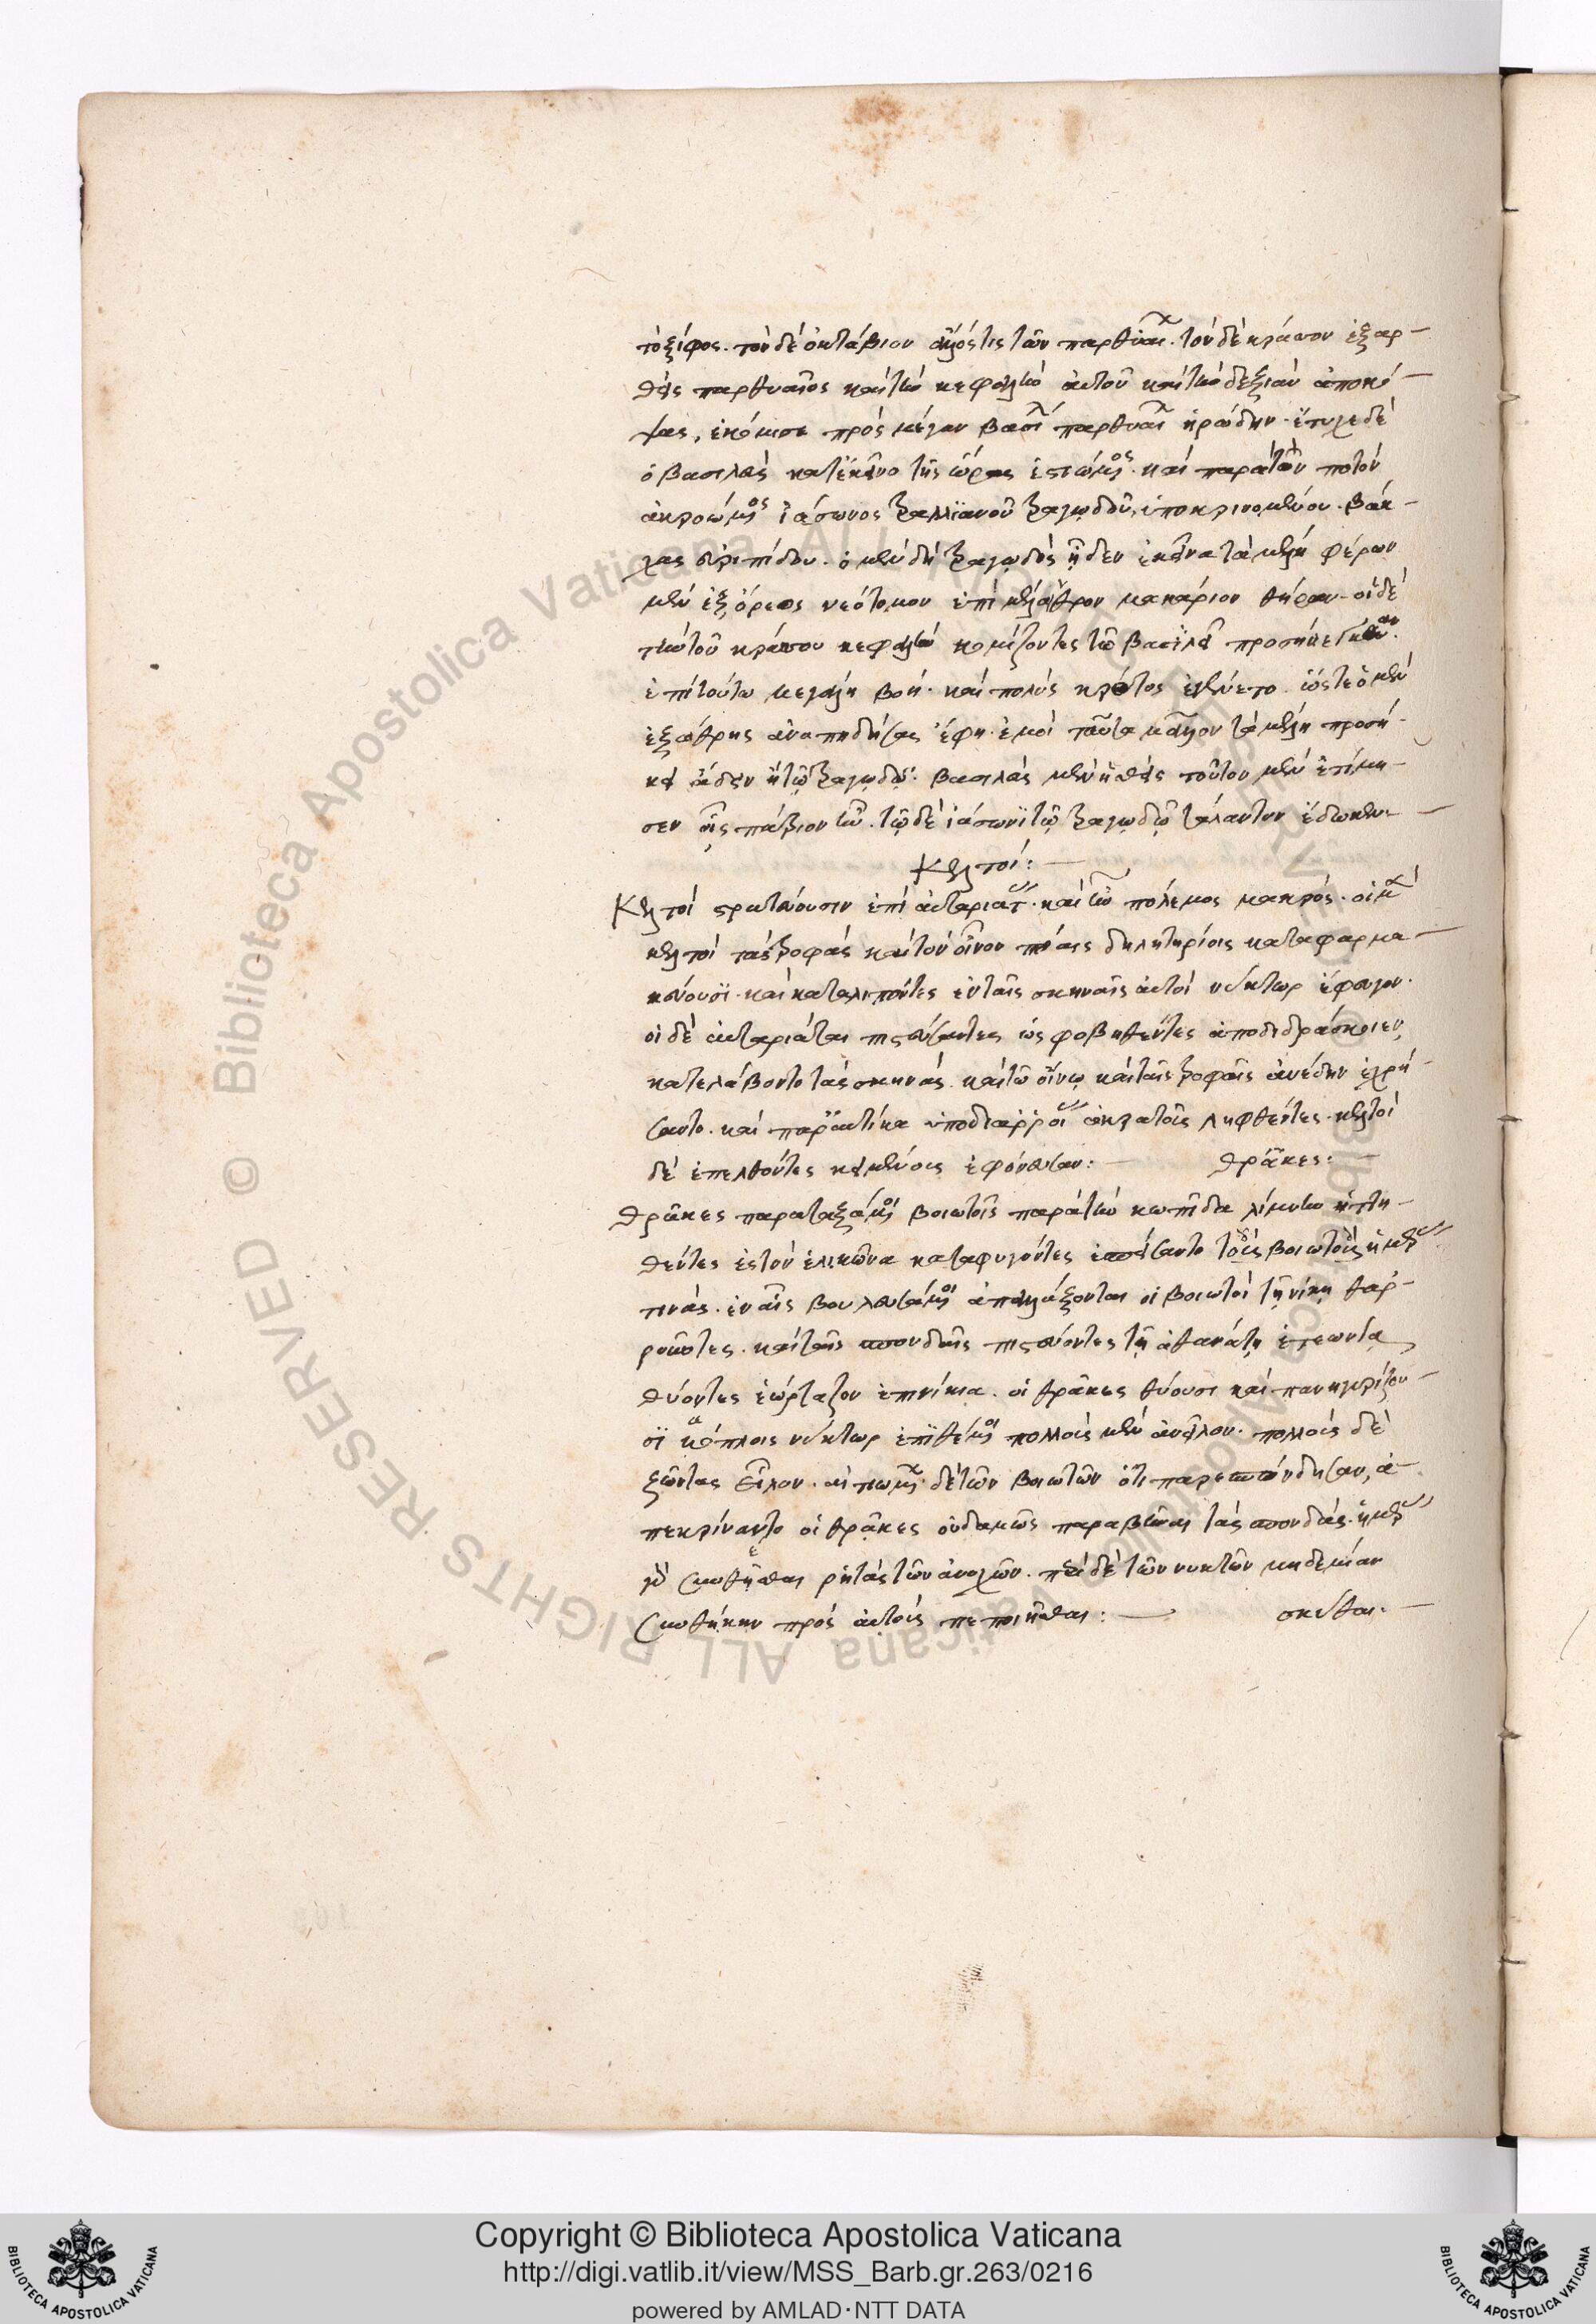 τὸ ξίφος. τὸν δὲ ὀκτάβιον ἄλλός τις τῶν παρθυαί. τὸν δὲ κράσσον ἐξαρ-
θεὶς παρθυαῖος καὶ τὴν κεφαλὴν αὐτοῦ καὶ τὴν δεξιὰν ἀποκό-
ψας, ἐκόμισε πρὸς μέγαν βασι παρθυαί ἡρώδην. ἔτυχε δὲ
ὁ βασιλεὺς κατ' ἐκεῖνο τῆς ὥρας ἑστιώμος. καὶ παρὰ τὸν πότον
ἀκροώμος ἰάσωνος τραλλϊανοῦ τραγῳδοῦ, ὑποκρινομένου. βάκ-
χας εὐριπίδου. ὁ μὲν δὴ τραγῳδὸς ᾖδεν ἐκεῖνα τὰ μέλη φέρων
μὲν ἐξ ὄρεος νεότομον ἐπὶ μέλαθρον μακάριον θήραν. οἱ δὲ
τὴν τοῦ κράσσου κεφαλὴν κομίζοντες τῶ βασιλεῖ προσήνεγκαν.
ἐπὶ τούτω μεγάλη βοὴ. καὶ πολὺς κρότος ἐγένετο. ὥστε ὁ μὲν
ἐξάθρης ἀναπηδήσας ἔφη. ἐμοὶ ταῦτα μᾶλλον τὰ μέλη προσή-
κει ἄδειν ἢ τῷ τραγῳδῷ. βασιλεὺς μὲν ἡσθεὶς τοῦτον μὲν ἐτίμη-
σεν οἷς πάτριον ἦν. τῷ δὲ ἰάσωνϊ τῷ τραγῳδῷ τάλαντον ἔδωκεν.
Κελτοί:
Κελτοὶ στρατεύουσιν ἐπὶ αὐταριάτ. καὶ ἦν πόλεμος μακρός. οἱ μ
κελτοὶ τὰς τροφὰς καὶ τὸν οἶνον πόαις δηλητηρίοις καταφαρμα-
κεύουσϊ. καὶ καταλιπόντες ἐν ταῖς σκηναῖς αὐτοὶ νύκτωρ ἔφευγον.
οἱ δὲ αὐταριάται πιστεύσαντες ὡς φοβηθέντες ἀποδιδράσκοιεν,
κατελάβοντο τὰς σκηνὰς. καὶ τῶ οἴνῳ καὶ ταῖς τροφαῖς ἀνέδην ἐχρή-
σαντο. καὶ παραυτίκα ὑπὸ διαρροί ἀκρατοῖς ληφθέντες. κελτοὶ
δὲ ἐπελθόντες κειμένους ἐφόνευσαν: θρᾶκες:
Θρᾶκες παραταξάμοι βοιωτοῖς παρὰ τὴν κωπῖδα λίμνην ἡττη-
θέντες ἐς τὸν ἑλικῶνα καταφυγόντες ἐσπείσαντο τοὺς βοιωτοὺς ἡμέρ
τινὰς. ἐν αἷς βουλευσάμοι ἀπαλλάξονται οἱ βοιωτοὶ τῇ νίκῃ θαρ-
ροῦντες. καὶ ταῖς σπονδαῖς πιστεύοντες τῇ ἀθανάτῃ ἰτωνίᾳ
θύοντες ἑώρταζον ἐπινίκια. οἱ θρᾶκες θύουσι καὶ πανηγυρίζου-
σϊ ἀόπλοις νύκτωρ ἐπϊθέμοι πολλοὺς μὲν ἀνεῖλον. πολλοὺς δὲ
ζῶντας εἷλον. αἰτιωμ δὲ τῶν βοιωτῶν ὅτι παρεσπόνδησαν, ἀ-
πεκρίναντο οἱ θρᾶκες οὐδαμῶς παραβῆναι τὰς σπονδὰς. ἡμέρ
γὰρ συνθέσθαι ῥητὰς τῶν ἀνοχῶν. περὶ δὲ τῶν νυκτῶν μηδεμίαν
συνθήκην πρὸς αὐτοὺς πεποιῆσθαι: σκύθαι.
Copyright © Biblioteca Apostolica Vaticana
http://digi.vatlib.it/view/MSS_Barb.gr.263/0216
powered by AMLAD·NTT DATA